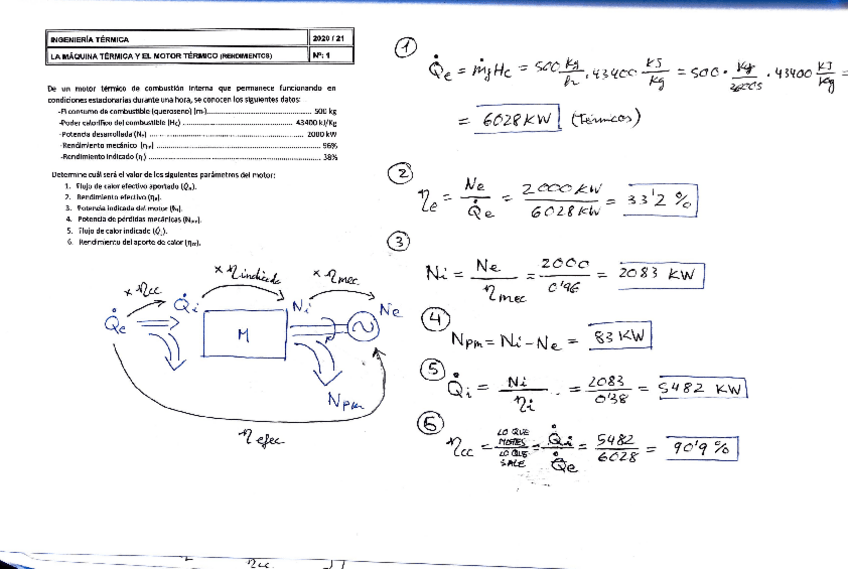 INGENIERÍA TÉRMICA 2020 / 21
LA MÁQUINA TÉRMICA Y EL MOTOR TÉRMICO (RENDIMIENTOS) Nº: 1
De un motor térmico de combustión interna que permanece funcionando en
condiciones estacionarias durante una hora, se conocen los siguientes datos:
-El consumo de combustible (queroseno) (m) 500 kg
-Poder calorífico del combustible (Hc) 43400 kJ/kg
-Potencia desarrollada (Ne) 2000 kW
-Rendimiento mecánico 96%
-Rendimiento indicado 38%
Determine cuál será el valor de los siguientes parámetros del motor:
1. Flujo de calor efectivo aportado (Q̇e).
2. Rendimiento efectivo (ηe).
3. Potencia indicada del motor (Ni).
4. Potencia de pérdidas mecánicas (Npm).
5. Flujo de calor indicado (Q̇i).
6. Rendimiento del aporte de calor (ηcc).
× ηcc × ηindicado × ηmec.
Q̇e Q̇i Ni Ne
M
Npm
ηefec
① Q̇e = ṁf Hc = 500 kg/h · 43400 kJ/kg = 500 · kg/3600s · 43400 kJ/kg =
= 6028 KW (Térmicos)
② ηe = Ne/Q̇e = 2000 KW/6028 KW = 33'2 %
③ Ni = Ne/ηmec = 2000/0'96 = 2083 KW
④ Npm = Ni - Ne = 83 KW
⑤ Q̇i = Ni/ηi = 2083/0'38 = 5482 KW
⑥ ηcc = LO QUE METES/LO QUE SALE = Q̇i/Q̇e = 5482/6028 = 90'9 %
ηcc